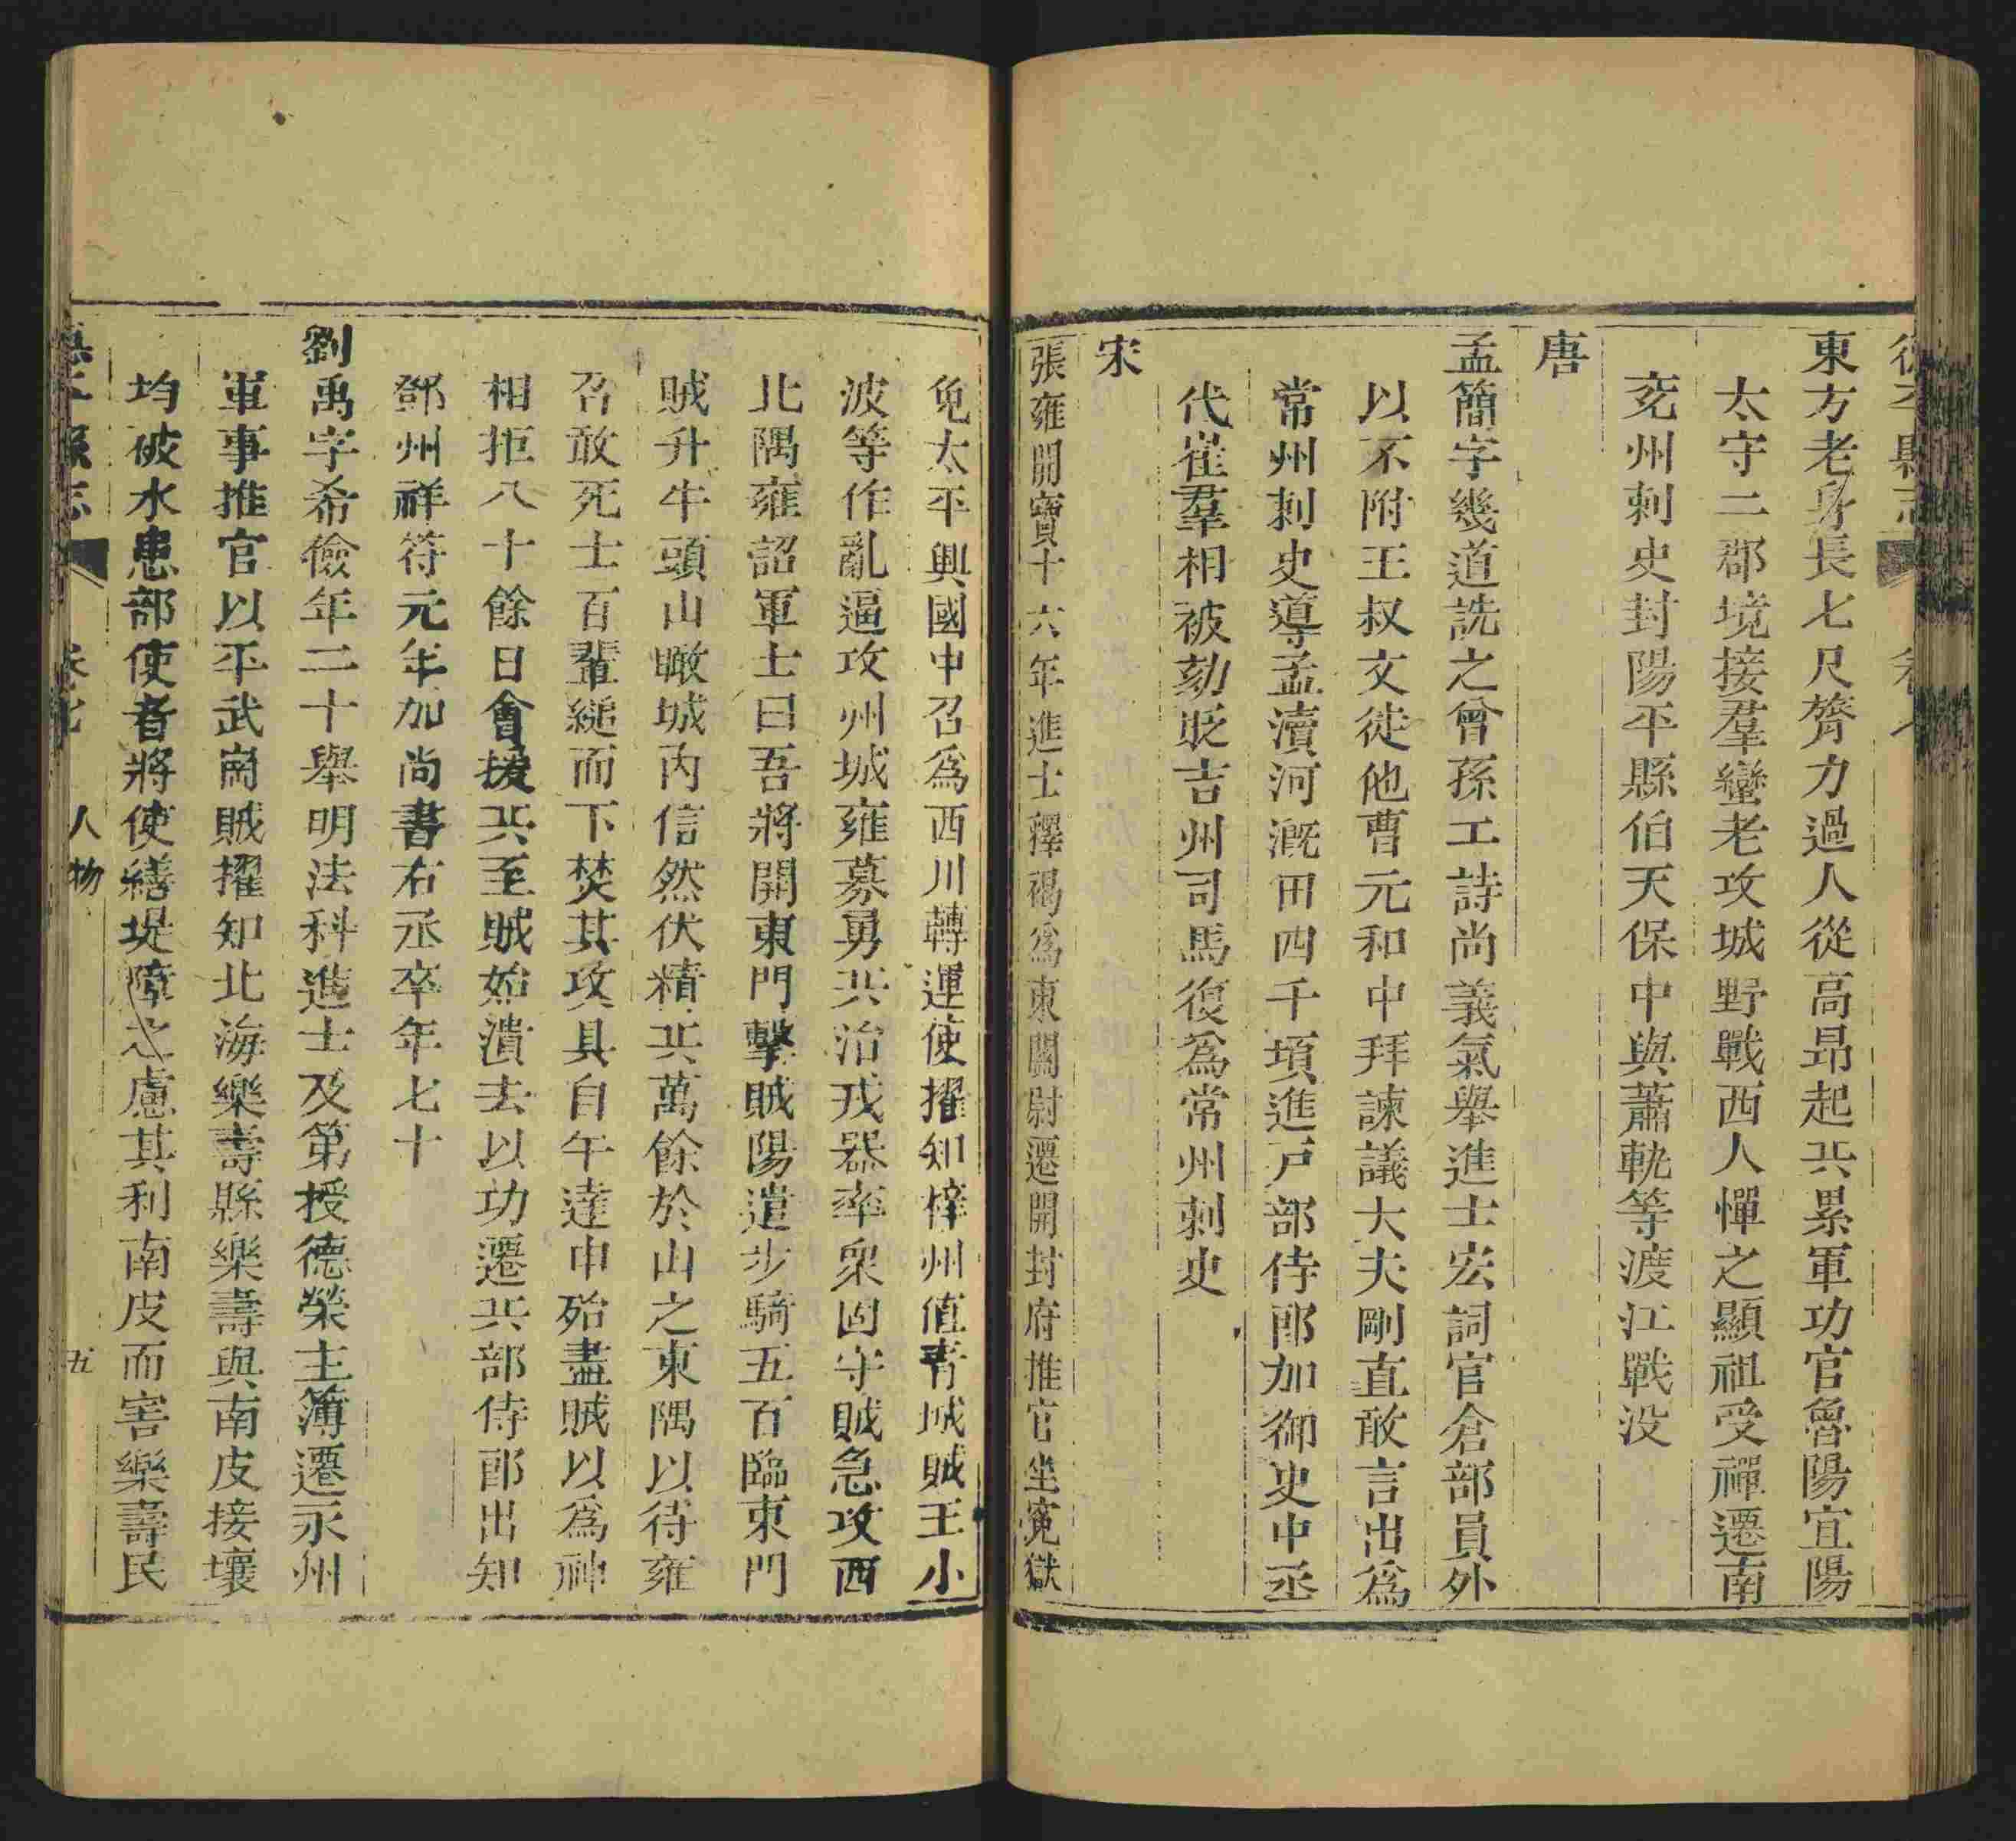 德平縣志 卷七
東方老身長七尺膂力過人從高昂起兵累軍功官魯陽宜陽
太守二郡境接羣蠻老攻城野戰西人憚之顯祖受禪遷南
兗州刺史封陽平縣伯天保中與蕭軌等渡江戰没
唐
孟簡字幾道詵之曾孫工詩尚義氣舉進士宏詞官倉部員外
以不附王叔文徙他曹元和中拜諫議大夫剛直敢言出爲
常州刺史導孟瀆河溉田四千頃進戸部侍郎加御史中丞
代崔羣相被劾貶吉州司馬復爲常州刺史
宋
張雍開寶十六年進士釋褐爲東關尉遷開封府推官坐寃獄
免太平興國中召爲西川轉運使擢知梓州值青城賊王小
波等作亂逼攻州城雍募勇兵治戎器率眾固守賊急攻西
北隅雍詔軍士曰吾將開東門擊賊陽遣步騎五百臨東門
賊升牛頭山瞰城内信然伏精兵萬餘於山之東隅以待雍
召敢死士百輩縋而下焚其攻具自午達申殆盡賊以爲神
相拒八十餘日會援兵至賊始潰去以功遷兵部侍郎出知
鄧州祥符元年加尚書右丞卒年七十
劉禹字希儉年二十舉明法科進士及第授德榮主簿遷永州
軍事推官以平武崗賊擢知北海樂壽縣樂壽與南皮接壤
均被水患部使者將使繕堤障之慮其利南皮而害樂壽民
德平縣志 卷七 人物 五